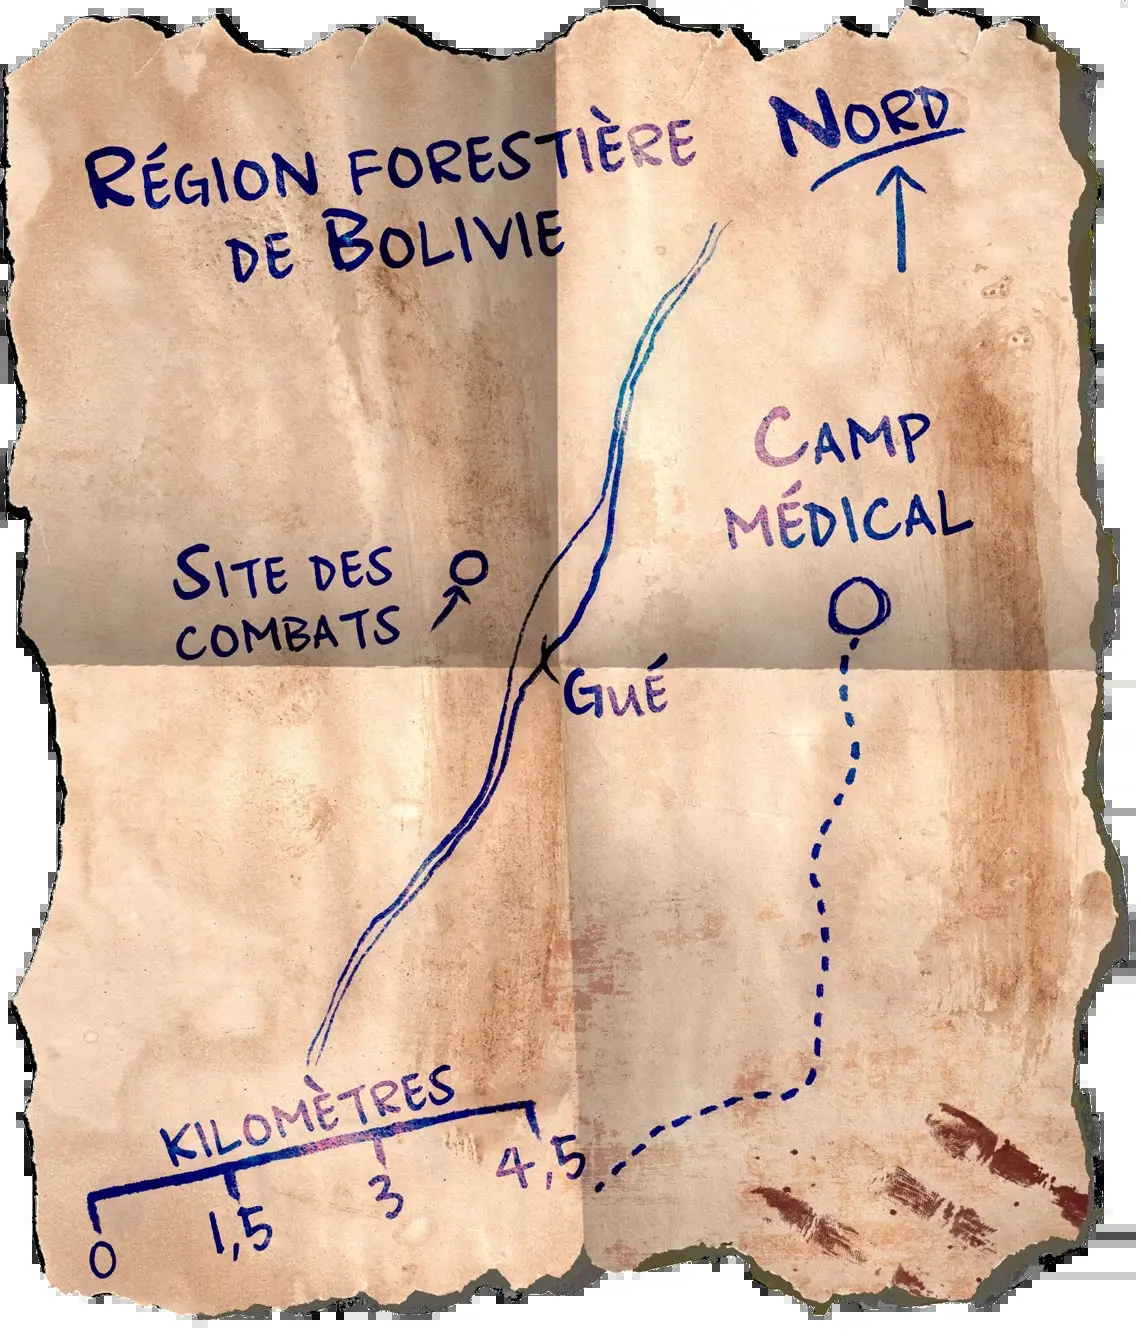 RÉGION FORESTIÈRE
DE BOLIVIE
NORD
CAMP
MÉDICAL
SITE DES
COMBATS
GUÉ
KILOMÈTRES
0
1,5
3
4,5